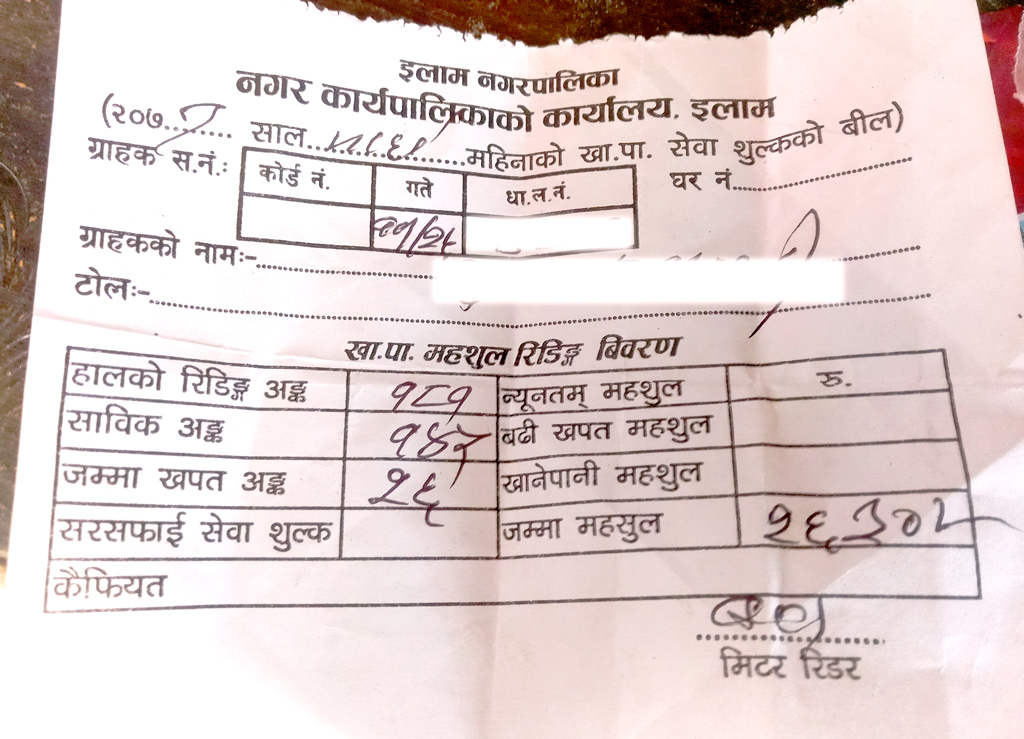 इलाम नगरपालिका
नगर कार्यपालिकाको कार्यालय, इलाम
(२०७...... साल.............महिनाको खा.पा. सेवा शुल्कको बील)
ग्राहक स.नं.: घर नं.....................
कोर्ड नं. गते धा.ल.नं.
ग्राहकको नामः-
टोलः-
खा.पा. महशुल रिडिङ्ग बिवरण
हालको रिडिङ्ग अङ्क १८१ न्यूनतम् महशुल रु.
साविक अङ्क बढी खपत महशुल
जम्मा खपत अङ्क २६ खानेपानी महशुल
सरसफाई सेवा शुल्क जम्मा महसुल
कैफियत
मिटर रिडर